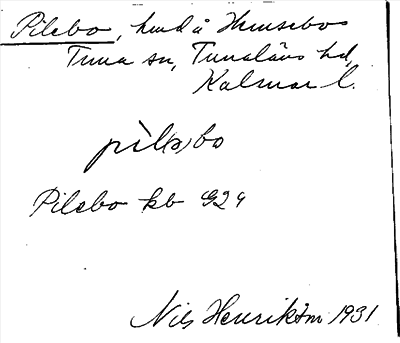 Pilebo, hmd å Hemsebo
Tuna sn, Tunaläns hd,
Kalmar l.
pìl(ə)bo
Pilebo kb G2g
Nils Henriksson 1931